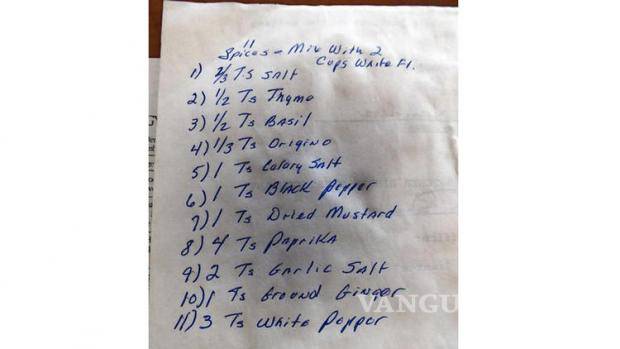 11
Spices - Mix With 2
Cups White Fl.
1) 2/3 Ts Salt
2) 1/2 Ts Thyme
3) 1/2 Ts Basil
4) 1/3 Ts Origino
5) 1 Ts Celary Salt
6) 1 Ts Black Pepper
7) 1 Ts Dried Mustard
8) 4 Ts Paprika
9) 2 Ts Garlic Salt
10) 1 Ts Ground Ginger
11) 3 Ts White Pepper
VANGU